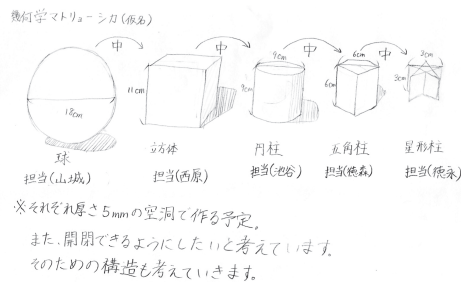 幾何学マトリョーシカ(仮名)
中 中 中 中
18cm
11cm
9cm
9cm
6cm
6cm
3cm
3cm
球 立方体 円柱 五角柱 星形柱
担当(山城) 担当(西原) 担当(池谷) 担当(徳森) 担当(徳永)
※それぞれ厚さ5mmの空洞で作る予定。
また、開閉できるようにしたいと考えています。
そのための構造も考えていきます。